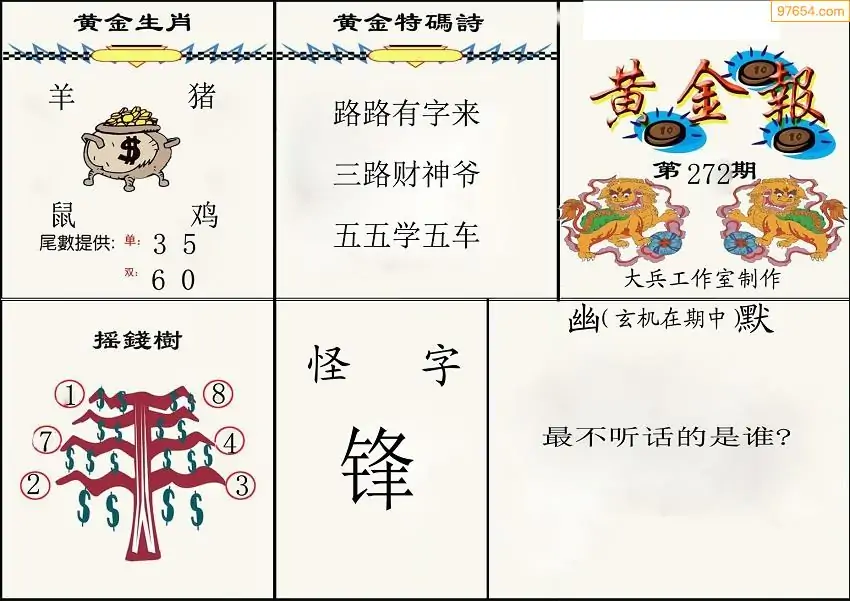 97654.com
黄金生肖
羊 猪
$
鼠 鸡
尾數提供: 单: 3 5
双: 6 0
黄金特碼詩
路路有字来
三路财神爷
五五学五车
黄金報
10
10
10
第272期
大兵工作室制作
摇錢樹
1 8
7 4
2 3
$ $ $ $
$ $ $ $
$ $ $ $
$ $ $ $
怪 字
锋
幽(玄机在期中)默
最不听话的是谁?